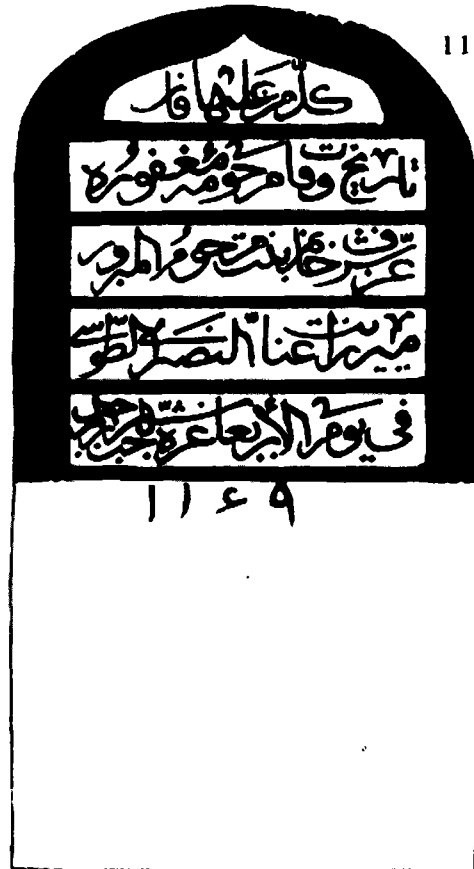 11
كل من عليها فان
تاريخ وفات مرحومه مغفوره
عزت شرف خانم ابنت مرحوم المبرور
ميرزا عنا النصر الطوسي
في يوم الأربعا غرة شهر رجب
١١٤٩